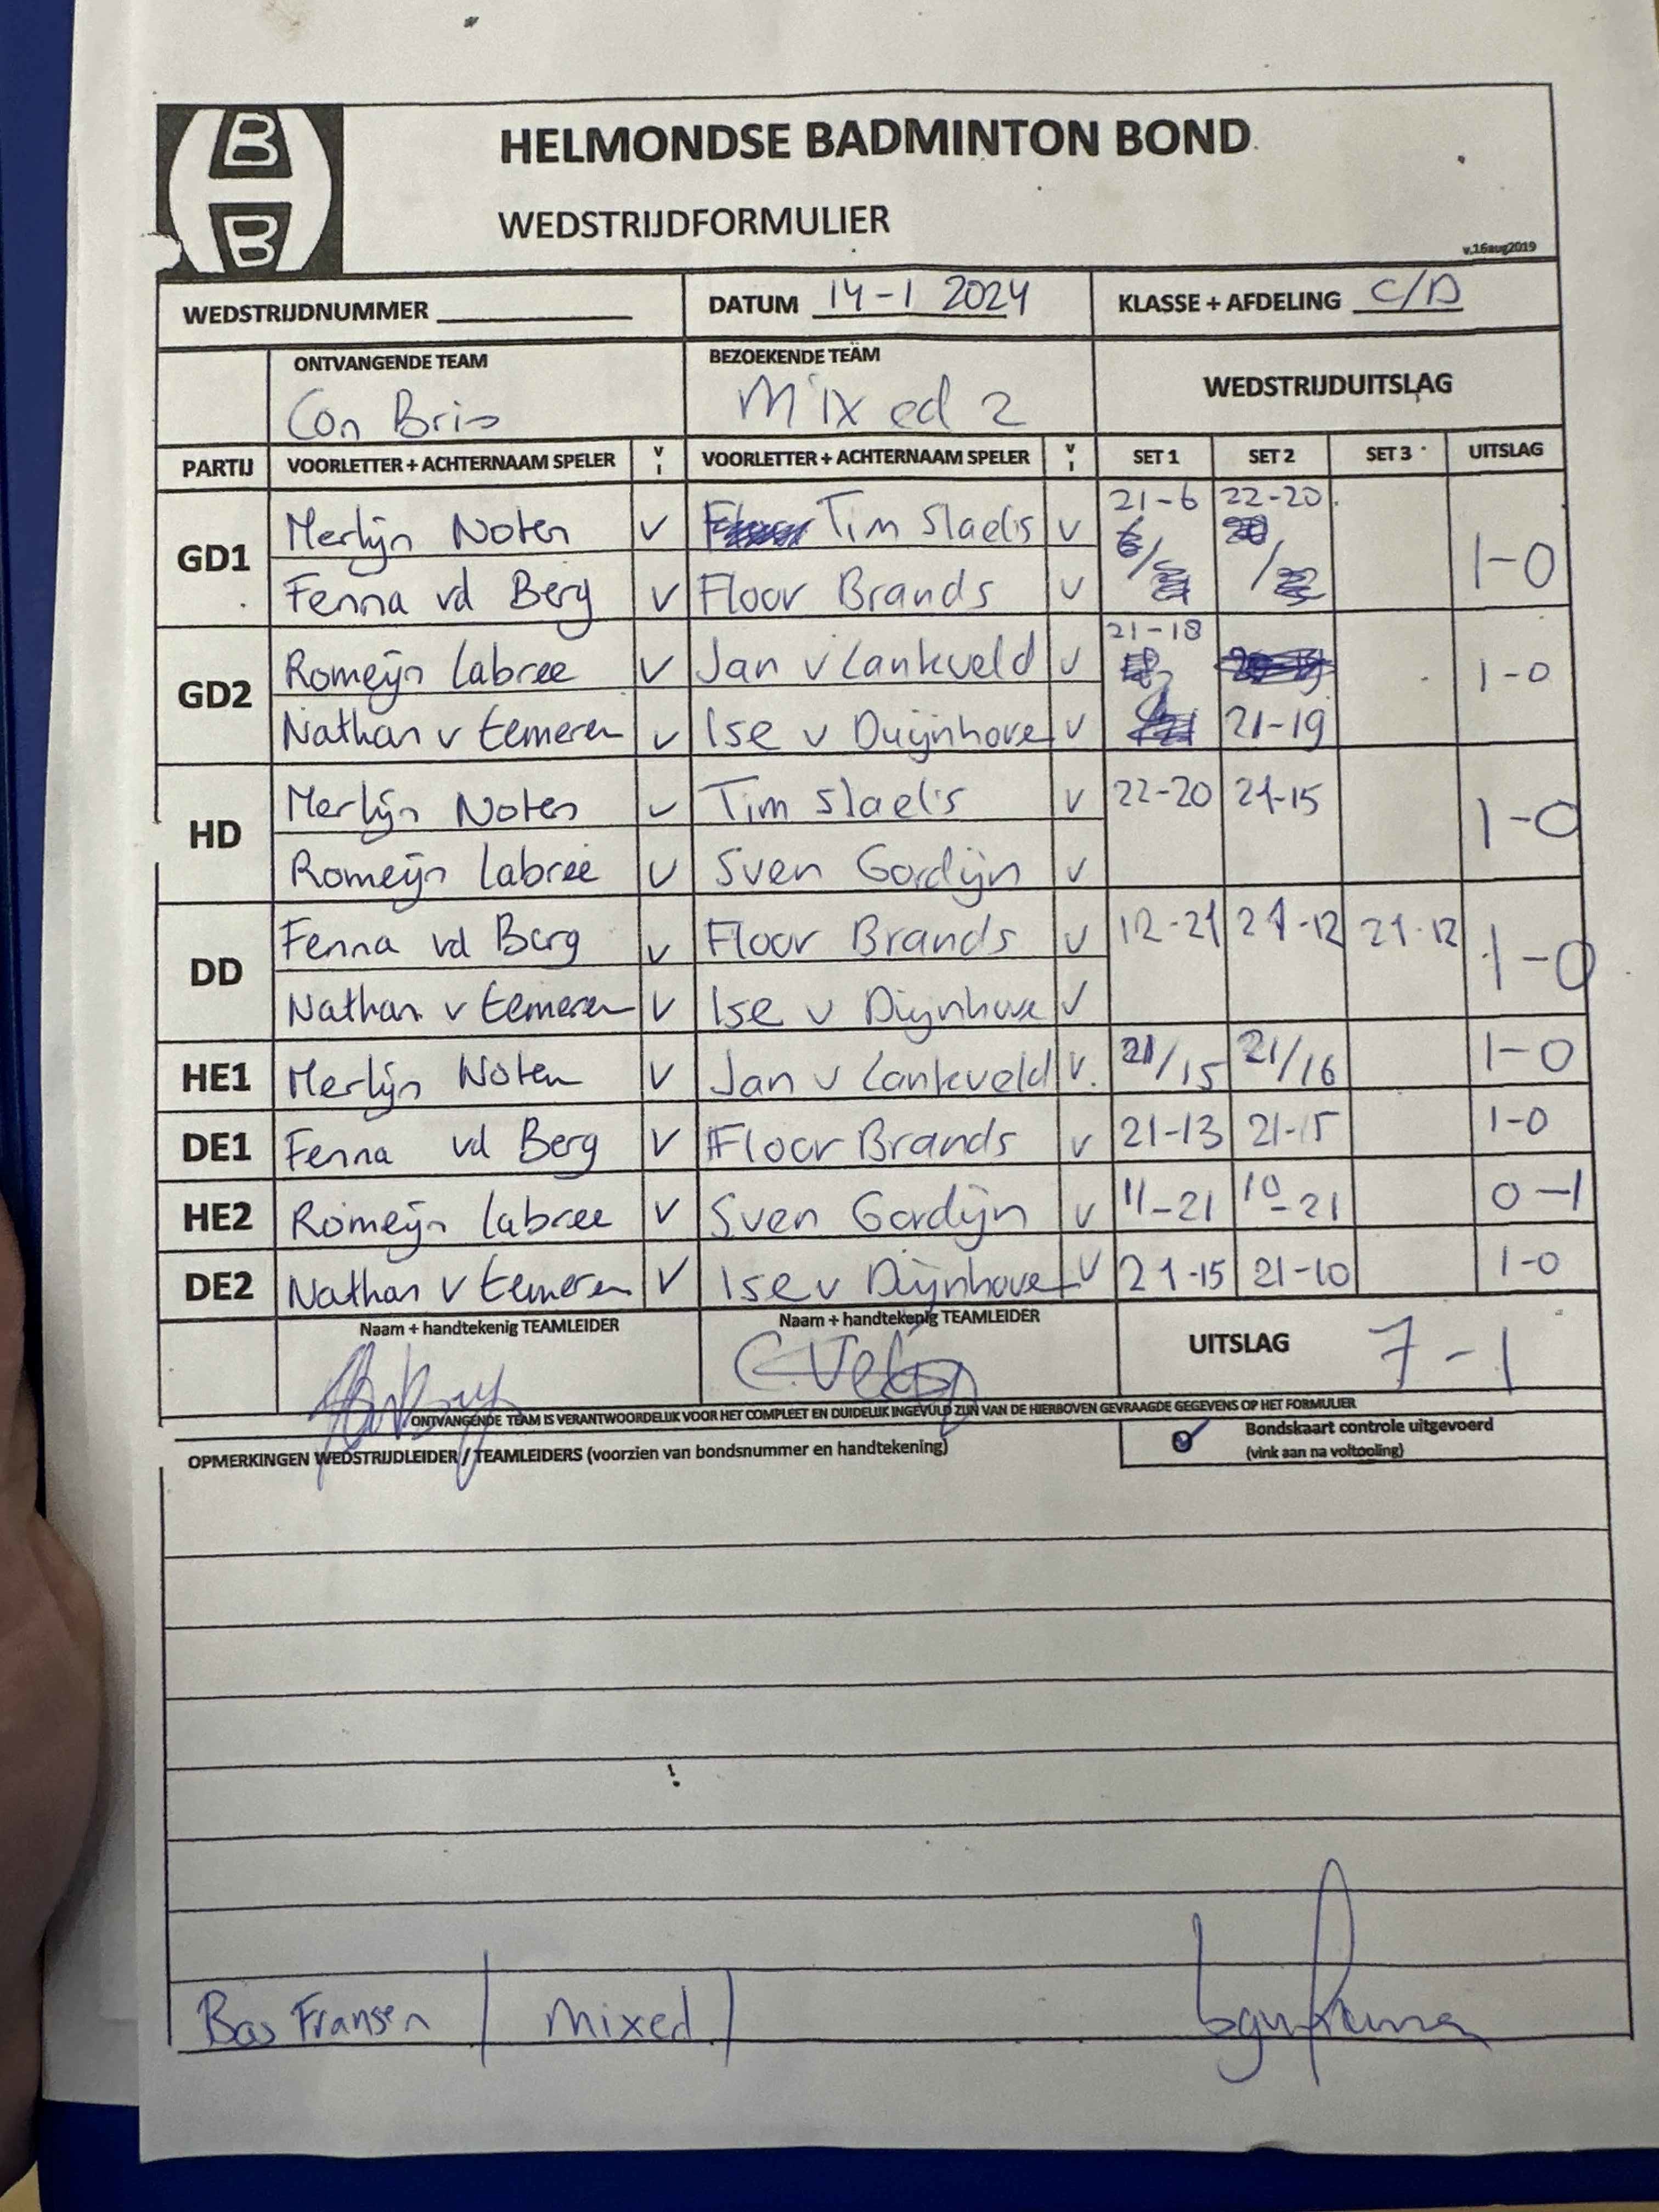 B
B
HELMONDSE BADMINTON BOND
WEDSTRIJDFORMULIER
v.16aug2019
WEDSTRIJDNUMMER DATUM 14-1 2024 KLASSE + AFDELING C/D
ONTVANGENDE TEAM BEZOEKENDE TEAM WEDSTRIJDUITSLAG
Con Brio Mixed 2
PARTIJ VOORLETTER + ACHTERNAAM SPELER V I VOORLETTER + ACHTERNAAM SPELER V I SET 1 SET 2 SET 3 UITSLAG
GD1 Merlijn Noten V Tim Slaets V 21-6 22-20 1-0
Fenna vd Berg V Floor Brands V
GD2 Romeijn Labree V Jan v Lankveld V 21-18 21-19 1-0
Nathan v Eemeren V Ise v Duijnhove V
HD Merlijn Noten V Tim Slaets V 22-20 21-15 1-0
Romeijn Labree V Sven Gordijn V
DD Fenna vd Berg V Floor Brands V 12-21 21-12 21-12 1-0
Nathan v Eemeren V Ise v Duijnhove V
HE1 Merlijn Noten V Jan v Lankveld V. 21/15 21/16 1-0
DE1 Fenna vd Berg V Floor Brands V 21-13 21-15 1-0
HE2 Romeijn Labree V Sven Gordijn V 11-21 10-21 0-1
DE2 Nathan v Eemeren V Ise v Duijnhove V 21-15 21-10 1-0
Naam + handtekenig TEAMLEIDER Naam + handtekenig TEAMLEIDER UITSLAG 7-1
ONTVANGENDE TEAM IS VERANTWOORDELIJK VOOR HET COMPLEET EN DUIDELIJK INGEVULD ZIJN VAN DE HIERBOVEN GEVRAAGDE GEGEVENS OP HET FORMULIER
OPMERKINGEN WEDSTRIJDLEIDER / TEAMLEIDERS (voorzien van bondsnummer en handtekening)
Bondskaart controle uitgevoerd
(vink aan na voltooiing)
Bas Fransen / mixed /